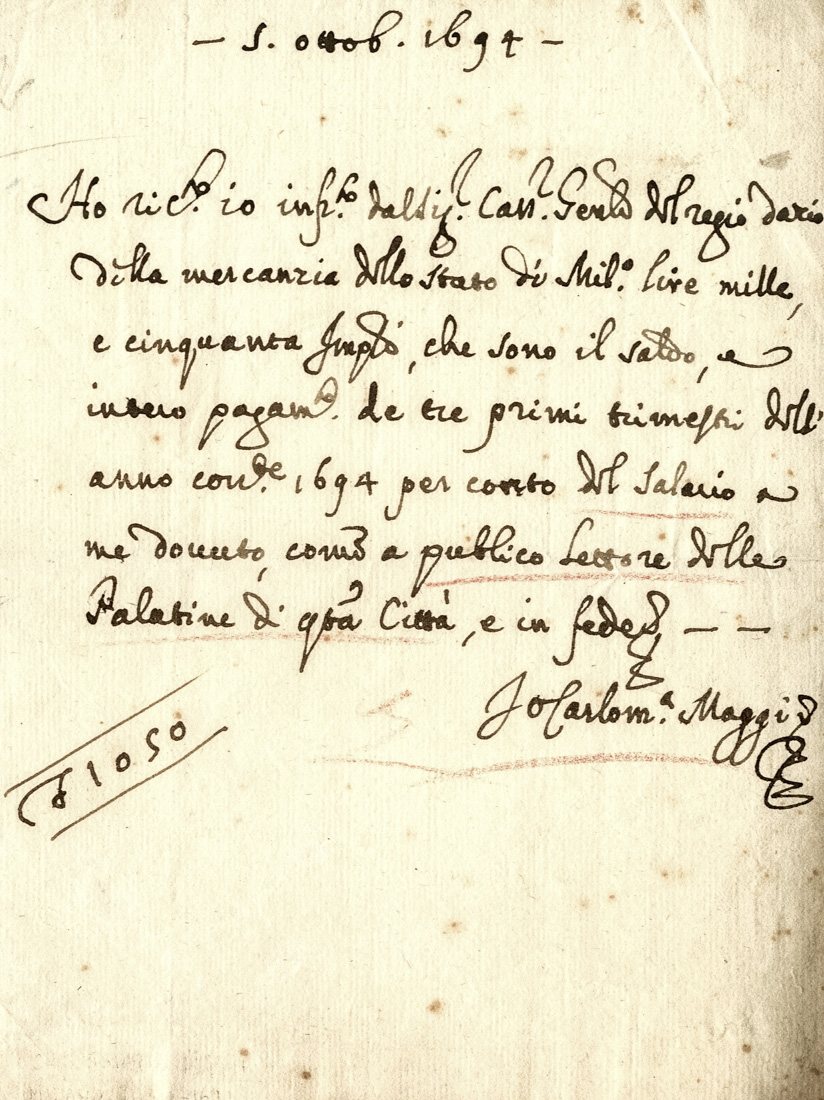 — 5. ottob. 1694 —
Ho ric.to io infr.to dal Sig.r Cass.r Gen̄le del regio dario
della mercanzia dello Stato di Mil.o lire mille,
e cinquanta Imp̄li, che sono il saldo, e
intero pagam.to de tre primi trimestri dell'
anno corr.te 1694 per conto del Salario a
me dovuto, come a publico Lettore delle
Palatine di q̄ta Città, e in fede — —
Io Carlom.a Maggi
1050